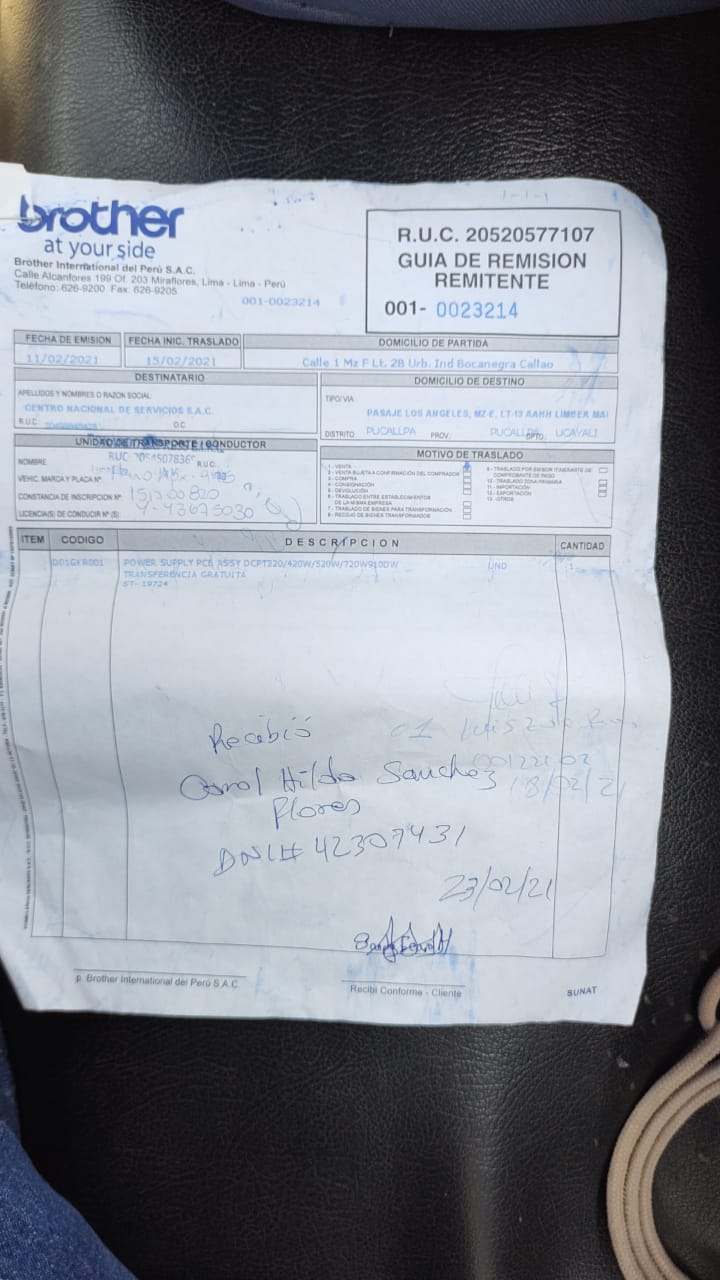 brother
at your side
Brother International del Perú S.A.C.
Calle Alcanfores 199 Of. 203 Miraflores, Lima - Lima - Perú
Teléfono: 626-9200 Fax: 626-9205
001-0023214
R.U.C. 20520577107
GUIA DE REMISION
REMITENTE
001- 0023214
FECHA DE EMISION
11/02/2021
FECHA INIC. TRASLADO
15/02/2021
DOMICILIO DE PARTIDA
Calle 1 Mz F Lt. 2B Urb. Ind Bocanegra Callao
DESTINATARIO
APELLIDOS Y NOMBRES O RAZON SOCIAL:
CENTRO NACIONAL DE SERVICIOS S.A.C.
R.U.C. O.C.
DOMICILIO DE DESTINO
TIPO/VIA
PASAJE LOS ANGELES, MZ-E, LT-13 AAHH LIMBER MAI
DISTRITO: PUCALLPA PROV: PUCALLPA DPTO: UCAYALI
UNIDAD DE TRANSPORTE / CONDUCTOR
NOMBRE: RUC R.U.C.
VEHIC. MARCA Y PLACA Nº
CONSTANCIA DE INSCRIPCION Nº
LICENCIA(S) DE CONDUCIR Nº (S)
MOTIVO DE TRASLADO
1 - VENTA
2 - VENTA SUJETA A CONFIRMACIÓN DEL COMPRADOR
3 - COMPRA
4 - CONSIGNACIÓN
5 - DEVOLUCIÓN
6 - TRASLADO ENTRE ESTABLECIMIENTOS
DE LA MISMA EMPRESA
7 - TRASLADO DE BIENES PARA TRANSFORMACIÓN
8 - RECOJO DE BIENES TRANSFORMADOS
9 - TRASLADO POR EMISOR ITINERANTE DE
COMPROBANTE DE PAGO
10 - TRASLADO ZONA PRIMARIA
11 - IMPORTACIÓN
12 - EXPORTACIÓN
13 - OTROS
ITEM CODIGO DESCRIPCION CANTIDAD
D01GKR001 POWER SUPPLY PCB ASSY DCPT220/420W/520W/720W910DW UND 1
TRANSFERENCIA GRATUITA
ST- 19724
Recibió
Carol Hilda Sanchez
Flores
DNI# 42307431
18/02/21
23/02/21
p. Brother International del Perú S.A.C.
Recibi Conforme - Cliente
SUNAT